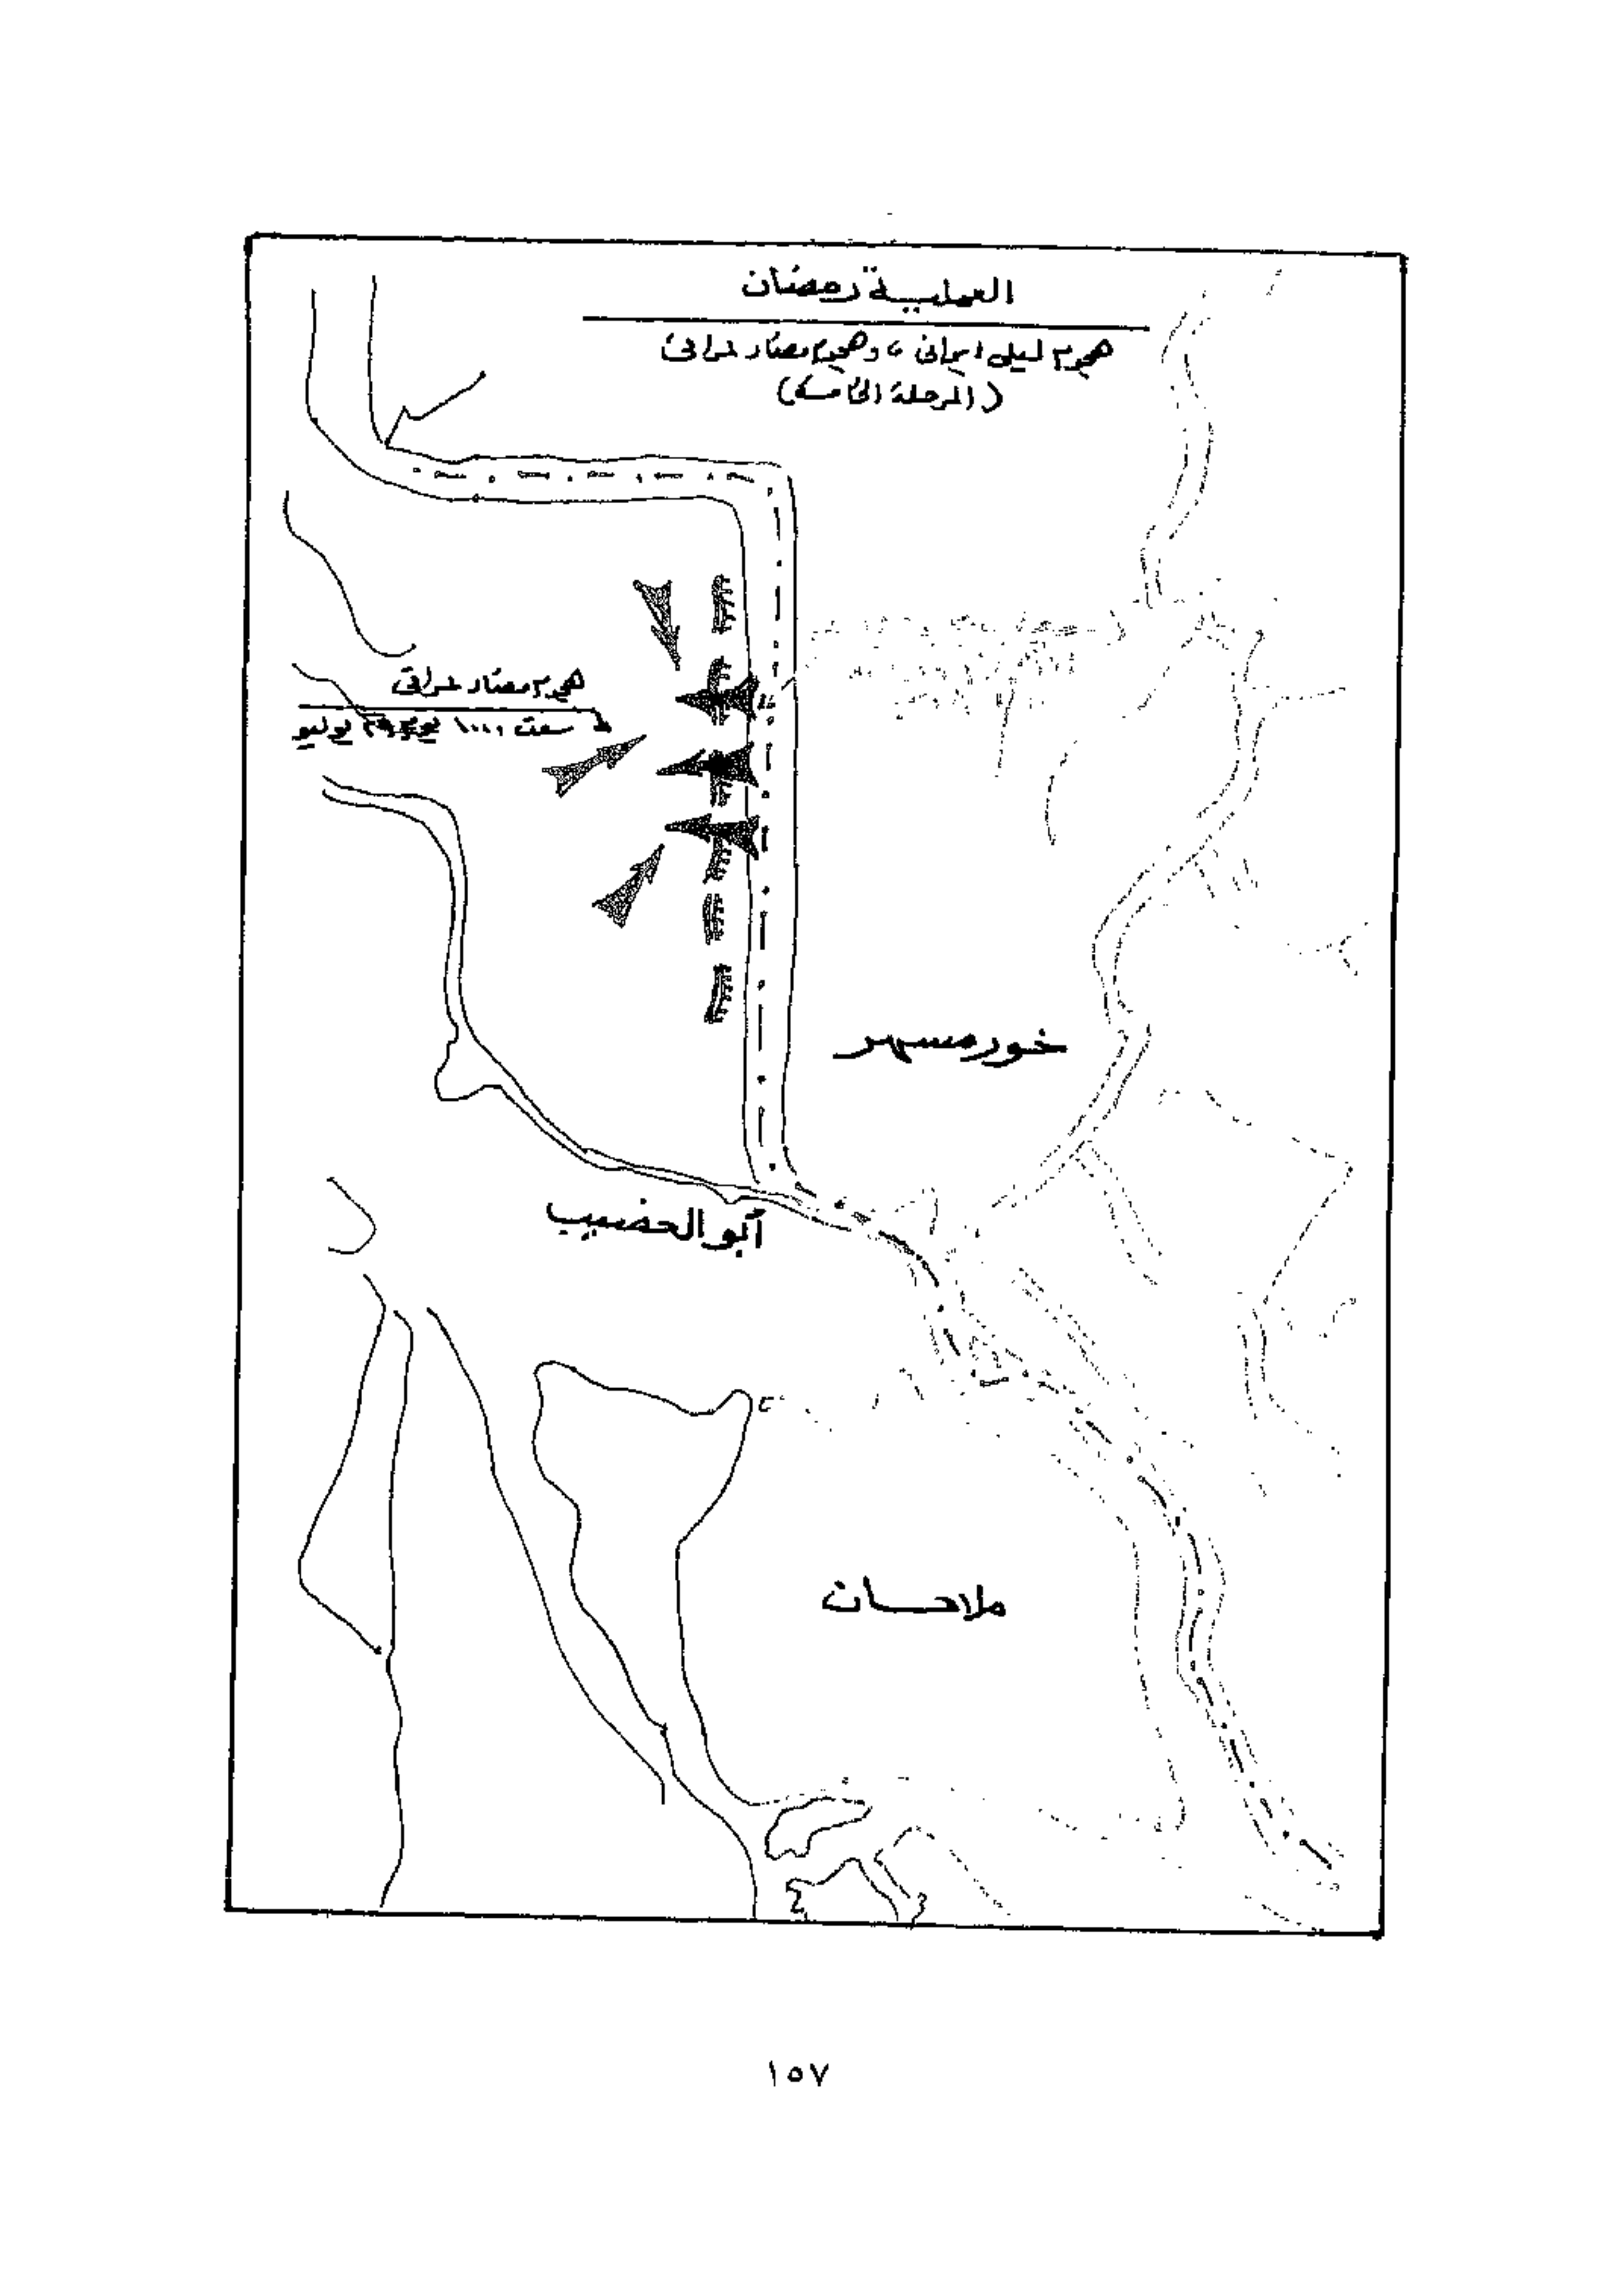 العملية رمضان
هجوم ليلى ايرانى ، وهجوم مضاد عراقى
(المرحلة الخامسة)
هجوم مضاد عراقى
سعت ١٠٠٠ يوم يوليو
خورمسهر
أبو الحضيب
ملاحات
١٥٧